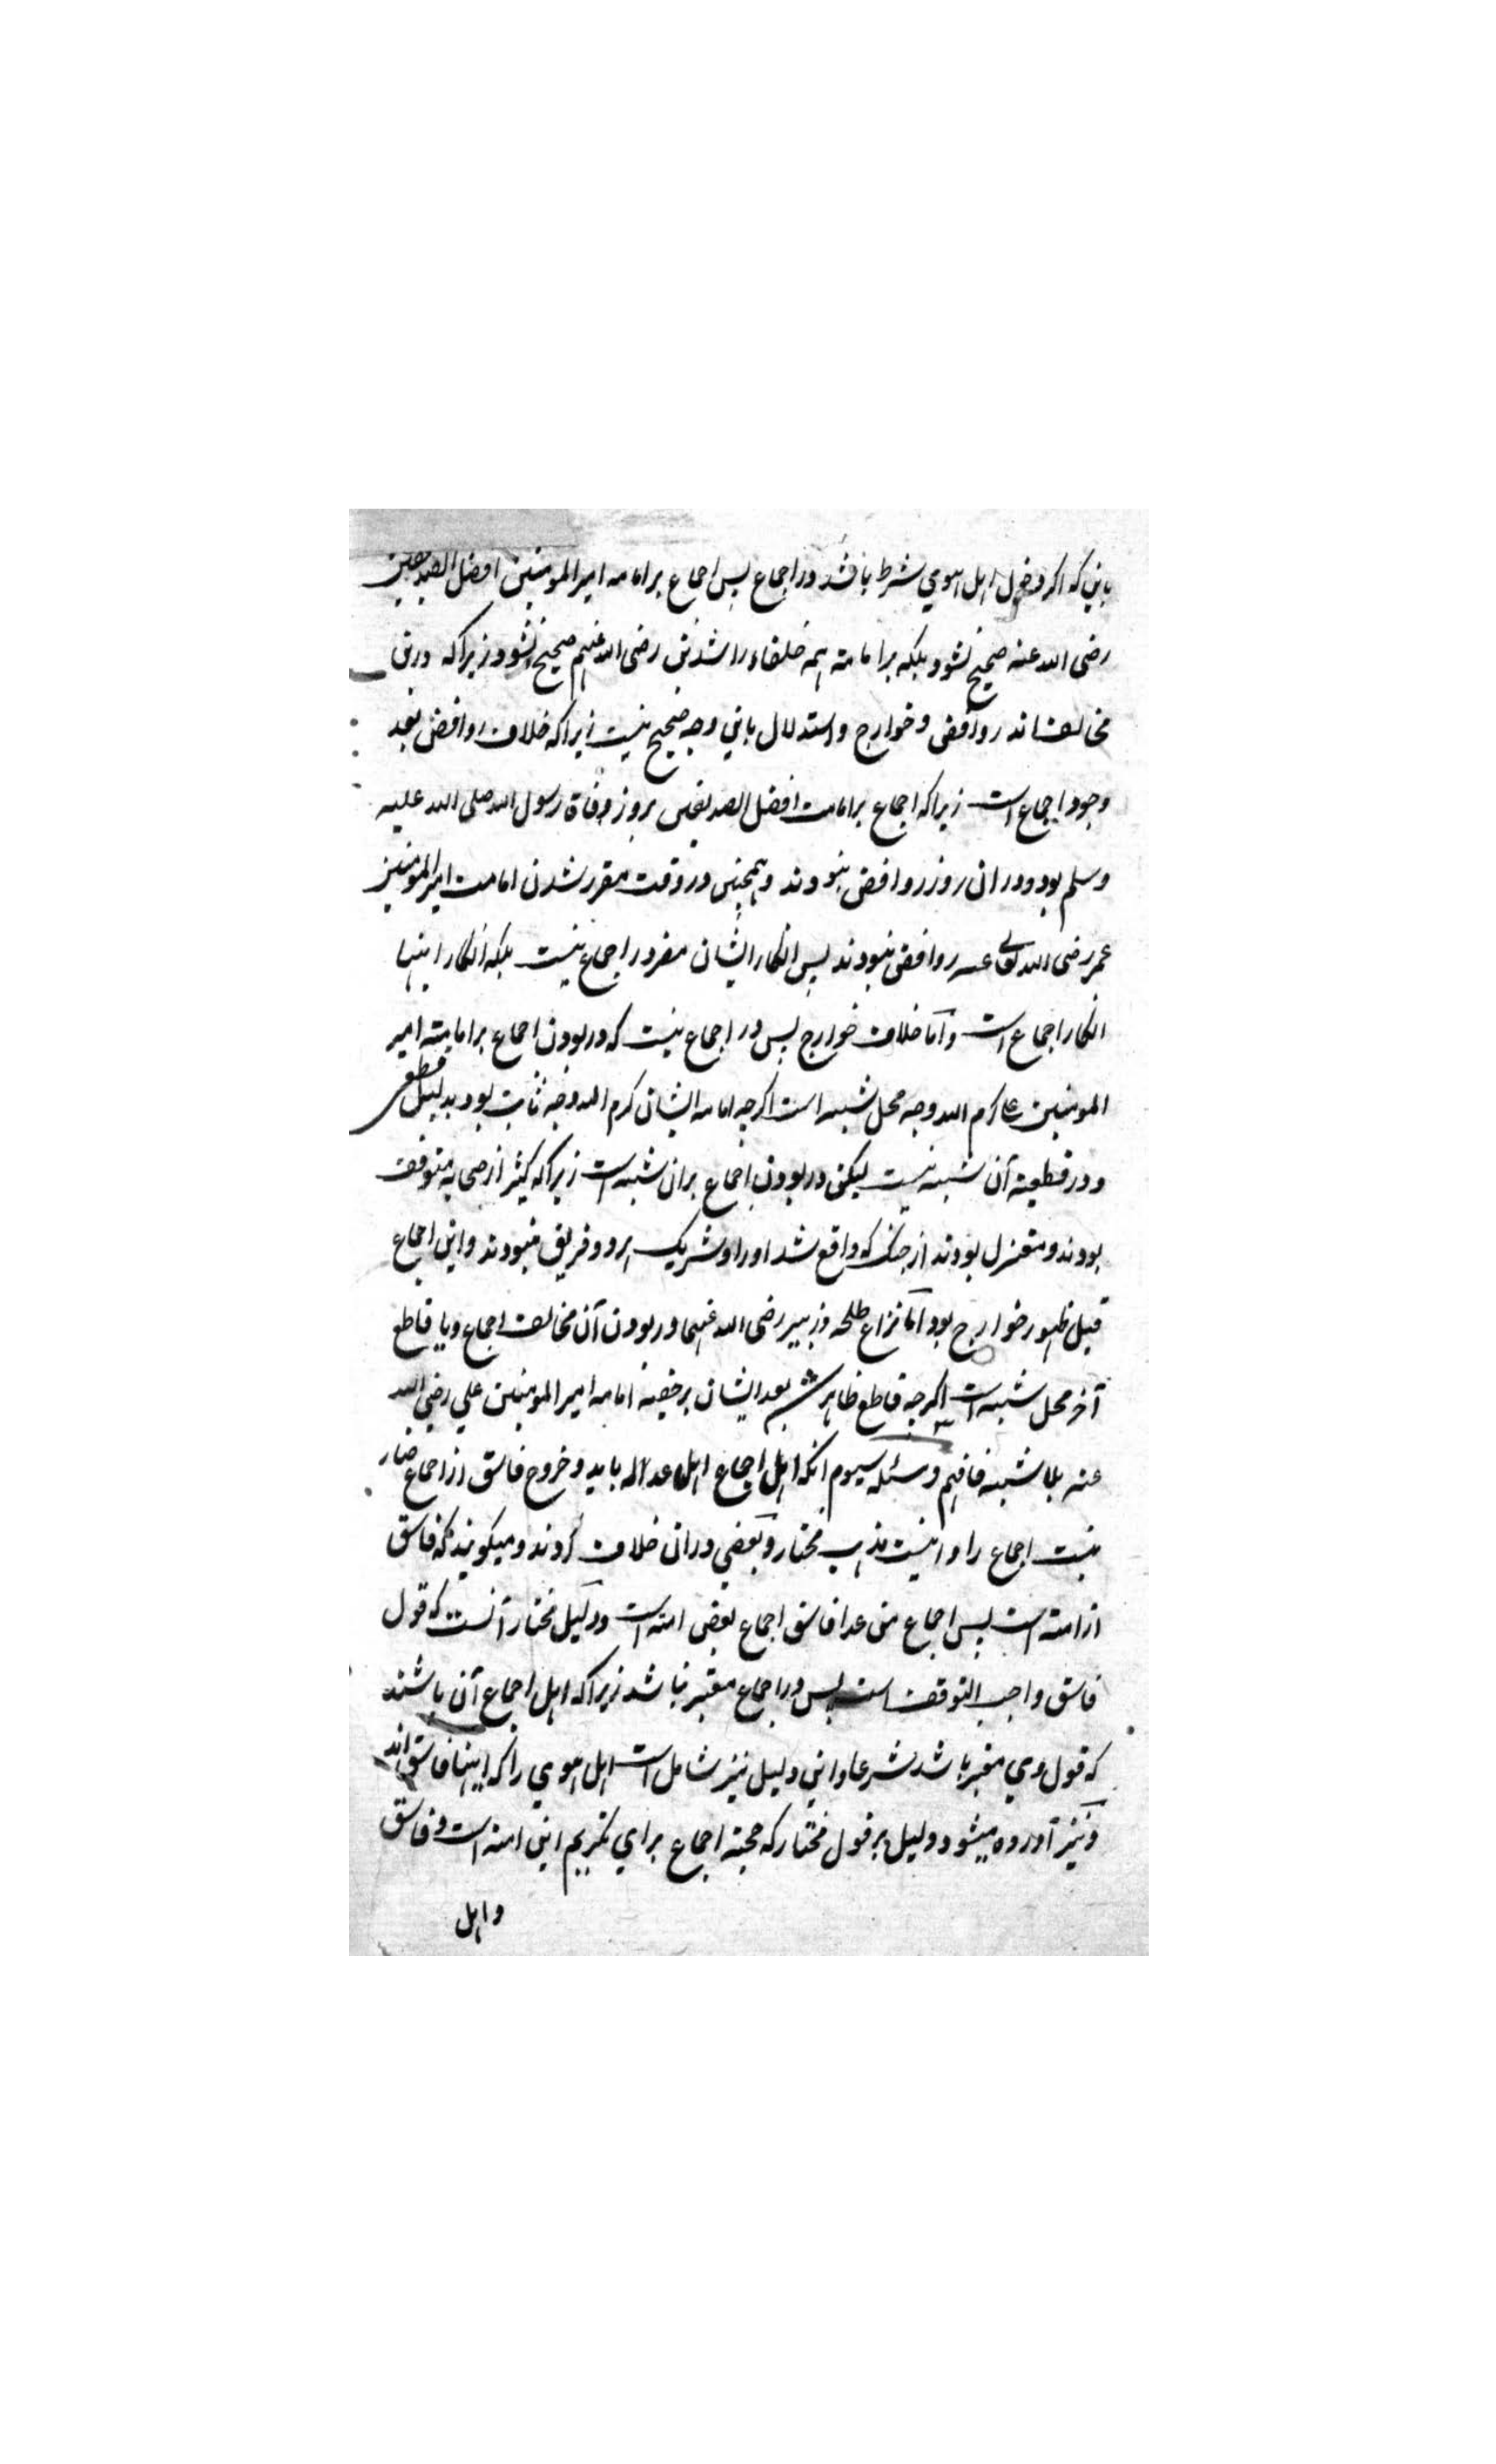 باین که اکر دخول اهل اهوي شرط باشد در اجماع پس اجماع بر امامه امیر المومنین افضل الصدیقین
رضی الله عنه صحیح نشود بلکه بر امامته همه خلفاء راشدین رضی الله عنهم صحیح نشود زیراکه درین
مخالف اند روافض و خوارج و استدلال باین وجه صحیح نیست زیراکه خلاف روافض بعد
وجود اجماع است زیراکه اجماع بر امامت افضل الصدیقین بروز وفاة رسول الله صلی الله علیه
وسلم بود و دران روز روافض نبودند و همچنین در وقت مقرر شدن امامت امیر المومنین
عمر رضی الله تعالی عنه روافض نبودند پس انکار ایشان مضر در اجماع نیست بلکه انکار اینها
انکار اجماع است و اما خلاف خوارج پس در اجماع نیست که در بودن اجماع بر امامته امیر
المومنین علی کرم الله وجهه محل شبهه است اکرچه امامه ایشان کرم الله وجهه ثابت بود بدلیل قطعی
و در قطعیته آن شبهه نیست لیکن در بودن اجماع بران شبهه است زیراکه کثیر از صحابه متوقف
بودند و متعزل بودند از جنک که واقع شد اورا و شریک هر دو فریق نبودند و این اجماع
قبل ظهور خوارج بود اما نزاع طلحه و زبیر رضی الله عنهما در بودن آن مخالف اجماع و یا قاطع
آخر محل شبهه است اکرچه قاطع ظاهر شد بعد ایشان بر حقیة امامه امیر المومنین علي رضي الله
عنه بلا شبهه فافهم و مسئله سیوم انکه اهل اجماع اهل عداله باید و خروج فاسق از اجماع ضار
نیست اجماع را و اینست مذهب مختار و بعضي دران خلاف کردند و میکویند که فاسق
از امته است پس اجماع من عدا فاسق اجماع بعض امته است و دلیل مختار آنست که قول
فاسق واجب التوقف است پس در اجماع معتبر نباشد زیراکه اهل اجماع آن باشند
که قول وي معتبر باشد شرعا و این دلیل نیز شامل است اهل اهوي را که اینها فاسق اند
و نیز آورده میشود دلیل بر قول مختار که حجته اجماع براي تکریم این امته است و فاسق
و اهل